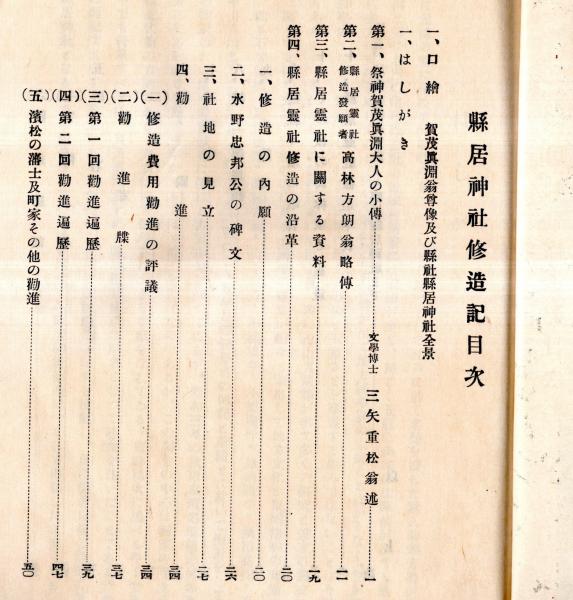 縣居神社修造記目次
一、口繪　賀茂眞淵翁尊像及び縣社縣居神社全景
一、はしがき
第一、祭神賀茂眞淵大人の小傳……文學博士　三矢重松翁述……一
第二、縣居靈社修造發願者　高林方朗翁略傳……一一
第三、縣居靈社に關する資料……一九
第四、縣居靈社修造の沿革……二〇
一、修造の內願……二〇
二、水野忠邦公の碑文……二六
三、社地の見立……二七
四、勸進……三四
(一)修造費用勸進の評議……三四
(二)勸進牒……三七
(三)第一回勸進遍歷……三九
(四)第二回勸進遍歷……四七
(五)濱松の藩士及町家その他の勸進……五〇